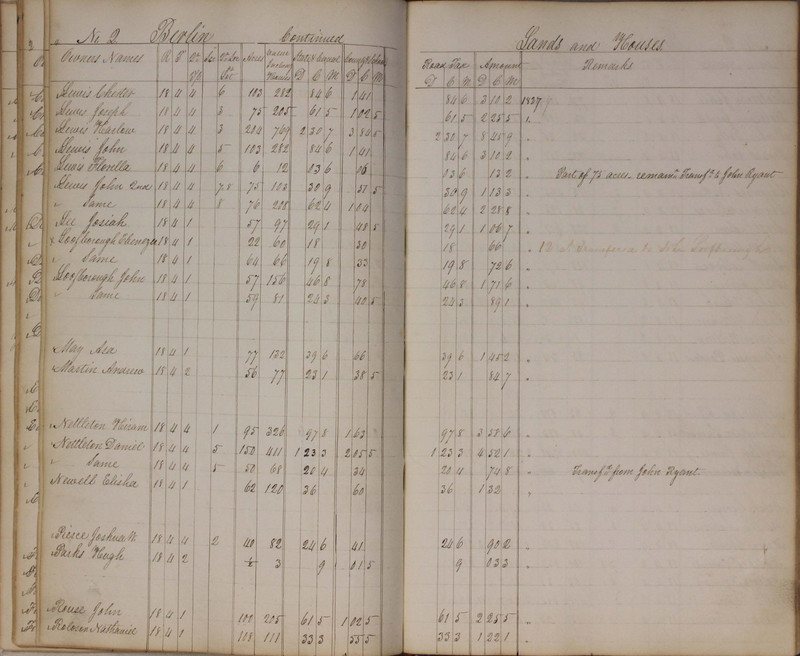 No 2 Berlin Continued Lands and Houses
Owners Names R T Acres State & Canal D C M D C M Road Tax D C M Amount D C M Remarks
Lewis Chester 18 4 4 6 103 282 84 6 1 41 84 6 3 10 2 1837
Lewis Joseph 18 4 4 3 75 205 61 5 1 02 5 61 5 2 25 5 "
Lewis Harlow 18 4 4 3 204 769 2 30 7 3 84 5 2 30 7 8 45 9 "
Lewis John 18 4 4 5 103 282 84 6 1 41 84 6 3 10 2 "
Lewis Florella 18 4 4 6 6 12 03 6 03 6 13 2 " Part of 75 acres remain Transfd to John Ryant
Lewis John 2nd 18 4 4 7.8 75 103 30 9 51 5 30 9 1 13 3 "
" Same 18 4 4 8 76 208 62 4 1 04 62 4 2 28 8 "
Lee Josiah 18 4 1 57 97 29 1 48 5 29 1 1 06 7 "
18 4 1 22 60 18 30 18 66 "
" Same 18 4 1 64 66 19 8 33 19 8 72 6 "
Loofborough John 18 4 1 57 156 46 8 78 46 8 1 71 6 "
" Same 18 4 1 59 81 24 3 40 5 24 3 89 1 "
May Asa 18 4 1 77 132 39 6 66 39 6 1 45 2 "
Martin Andrew 18 4 2 56 77 23 1 38 5 23 1 84 7 "
Nettleton Hiram 18 4 4 1 95 326 97 8 1 63 97 8 3 58 6 "
Nettleton Daniel 18 4 4 5 150 411 1 23 3 2 05 5 1 23 3 4 52 1 "
" Same 18 4 4 5 50 68 20 4 34 20 4 74 8 " Transfd from John Ryant
Newell Elisha 18 4 1 62 120 36 60 36 1 32 "
Pierce Joshua N 18 4 4 2 40 82 24 6 41 24 6 90 2 "
Parks Hugh 18 4 2 3 9 01 5 9 03 3 "
Rouse John 18 4 1 102 205 61 5 1 02 5 61 5 2 25 5 "
Roloson Nathaniel 18 4 1 108 111 33 3 55 5 33 3 1 22 1 "